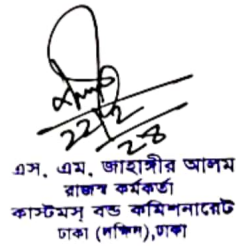 ২২/২
২৪
এস, এম, জাহাঙ্গীর আলম
রাজস্ব কর্মকর্তা
কাস্টমস্ বন্ড কমিশনারেট
ঢাকা (দক্ষিন),ঢাকা